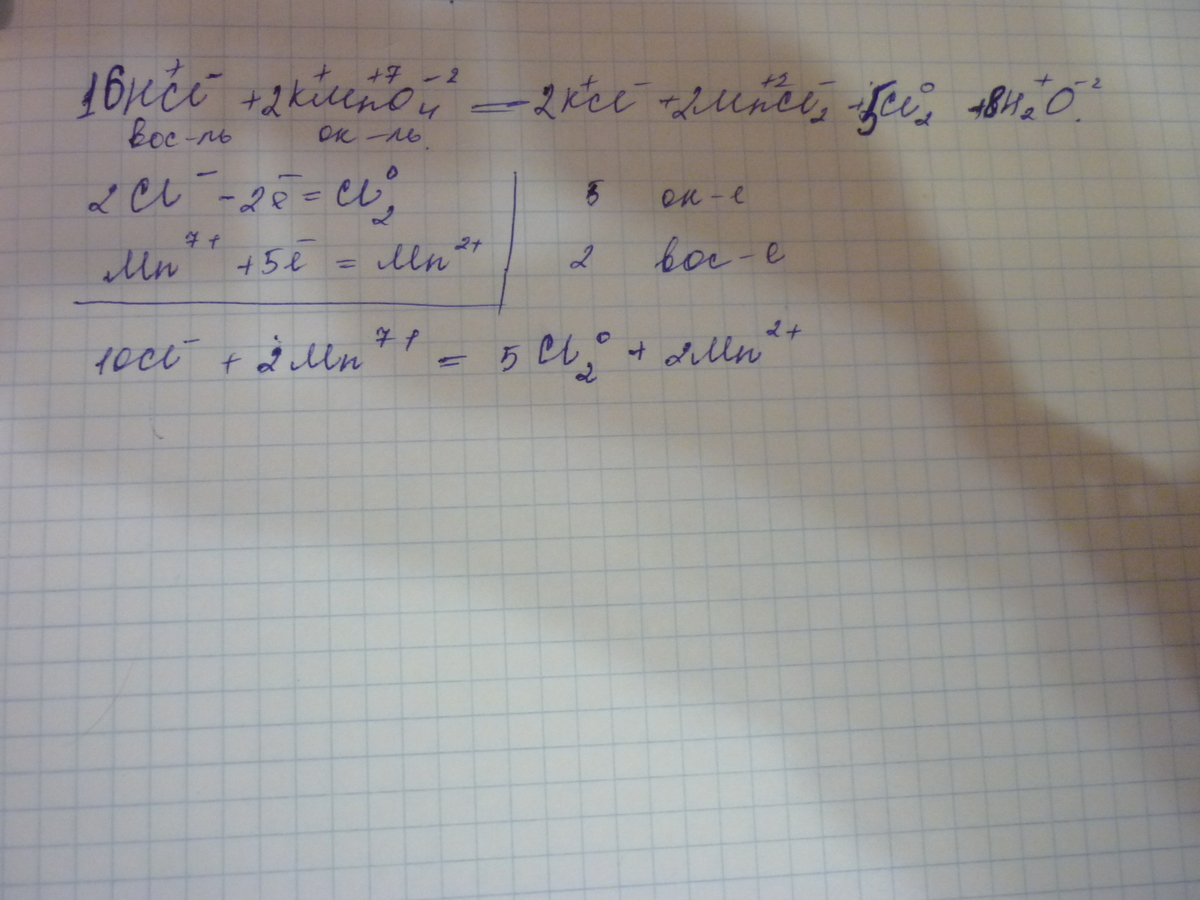 16H⁺Cl⁻ + 2K⁺Mn⁺⁷O₄⁻² = 2K⁺Cl⁻ + 2Mn⁺²Cl₂⁻ + 5Cl₂⁰ + 8H₂⁺O⁻².
вос-ль ок-ль.
2Cl⁻ - 2ē = Cl₂⁰ | 5 ок-е
Mn⁷⁺ + 5ē = Mn²⁺ | 2 вос-е
10Cl⁻ + 2Mn⁷⁺ = 5Cl₂⁰ + 2Mn²⁺